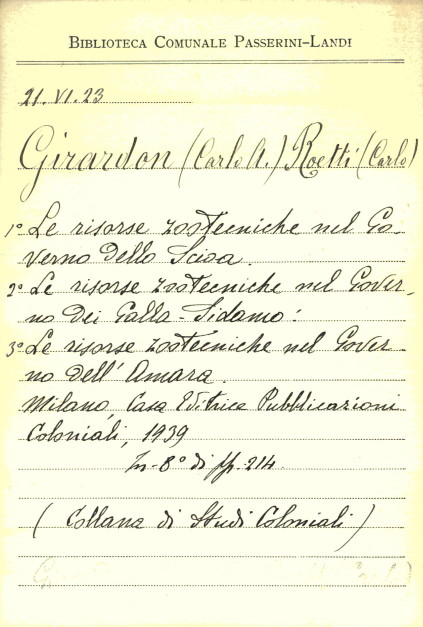 BIBLIOTECA COMUNALE PASSERINI-LANDI
21.VI.23
Girardon (Carlo A.) Roetti (Carlo)
1° Le risorse zootecniche nel Go-
verno dello Scioa.
2° Le risorse zootecniche nel Gover-
no dei Galla-Sidamo.
3° Le risorse zootecniche nel Gover
no dell'Amara.
Milano, Casa Editrice Pubblicazioni
Coloniali, 1939
In-8° di pp. 214.
(Collana di Studi Coloniali)